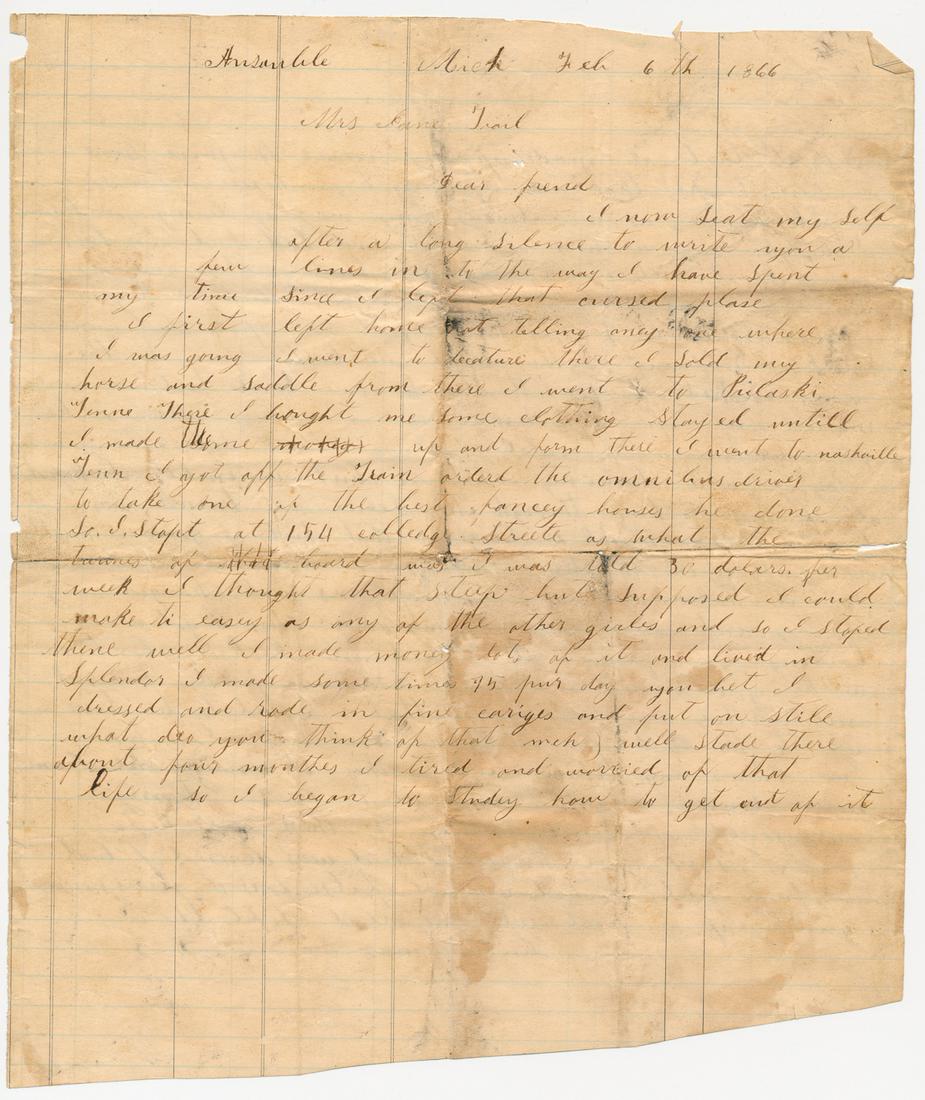 Ausauble Mich Feb 6 th 1866
Mrs Jane Trail
Dear frend
I now Seat my Self
after a long Silence to write you a
few lines in to the way I have Spent
my time Since I left that cursed plase
I first left home not telling aney one where
I was going I went to decature there I Sold my
horse and Saddle from there I went to Pulaski
Tenne There I bought me Some clothing Stayed untill
I made them up and form there I went to nashville
Tenn I got off the Train orderd the omnibus driver
to take one of the best fancey houses he done
So. I. Stopt at 154 colledge Streete as what the
turmes of board was I was told 30 dolars. per
week I thought that Steep but Supposed I could
make ti easey as any of the other girles and so I stoped
there well I made money lots of it and lived in
Splendor I made some times 95 pur day you bet I
dressed and rode in fine cariges and put on Stile
what deo you think of that meh well Stade there
about four monthes I tired and worried of that
life so I began to Studey how to get out of it